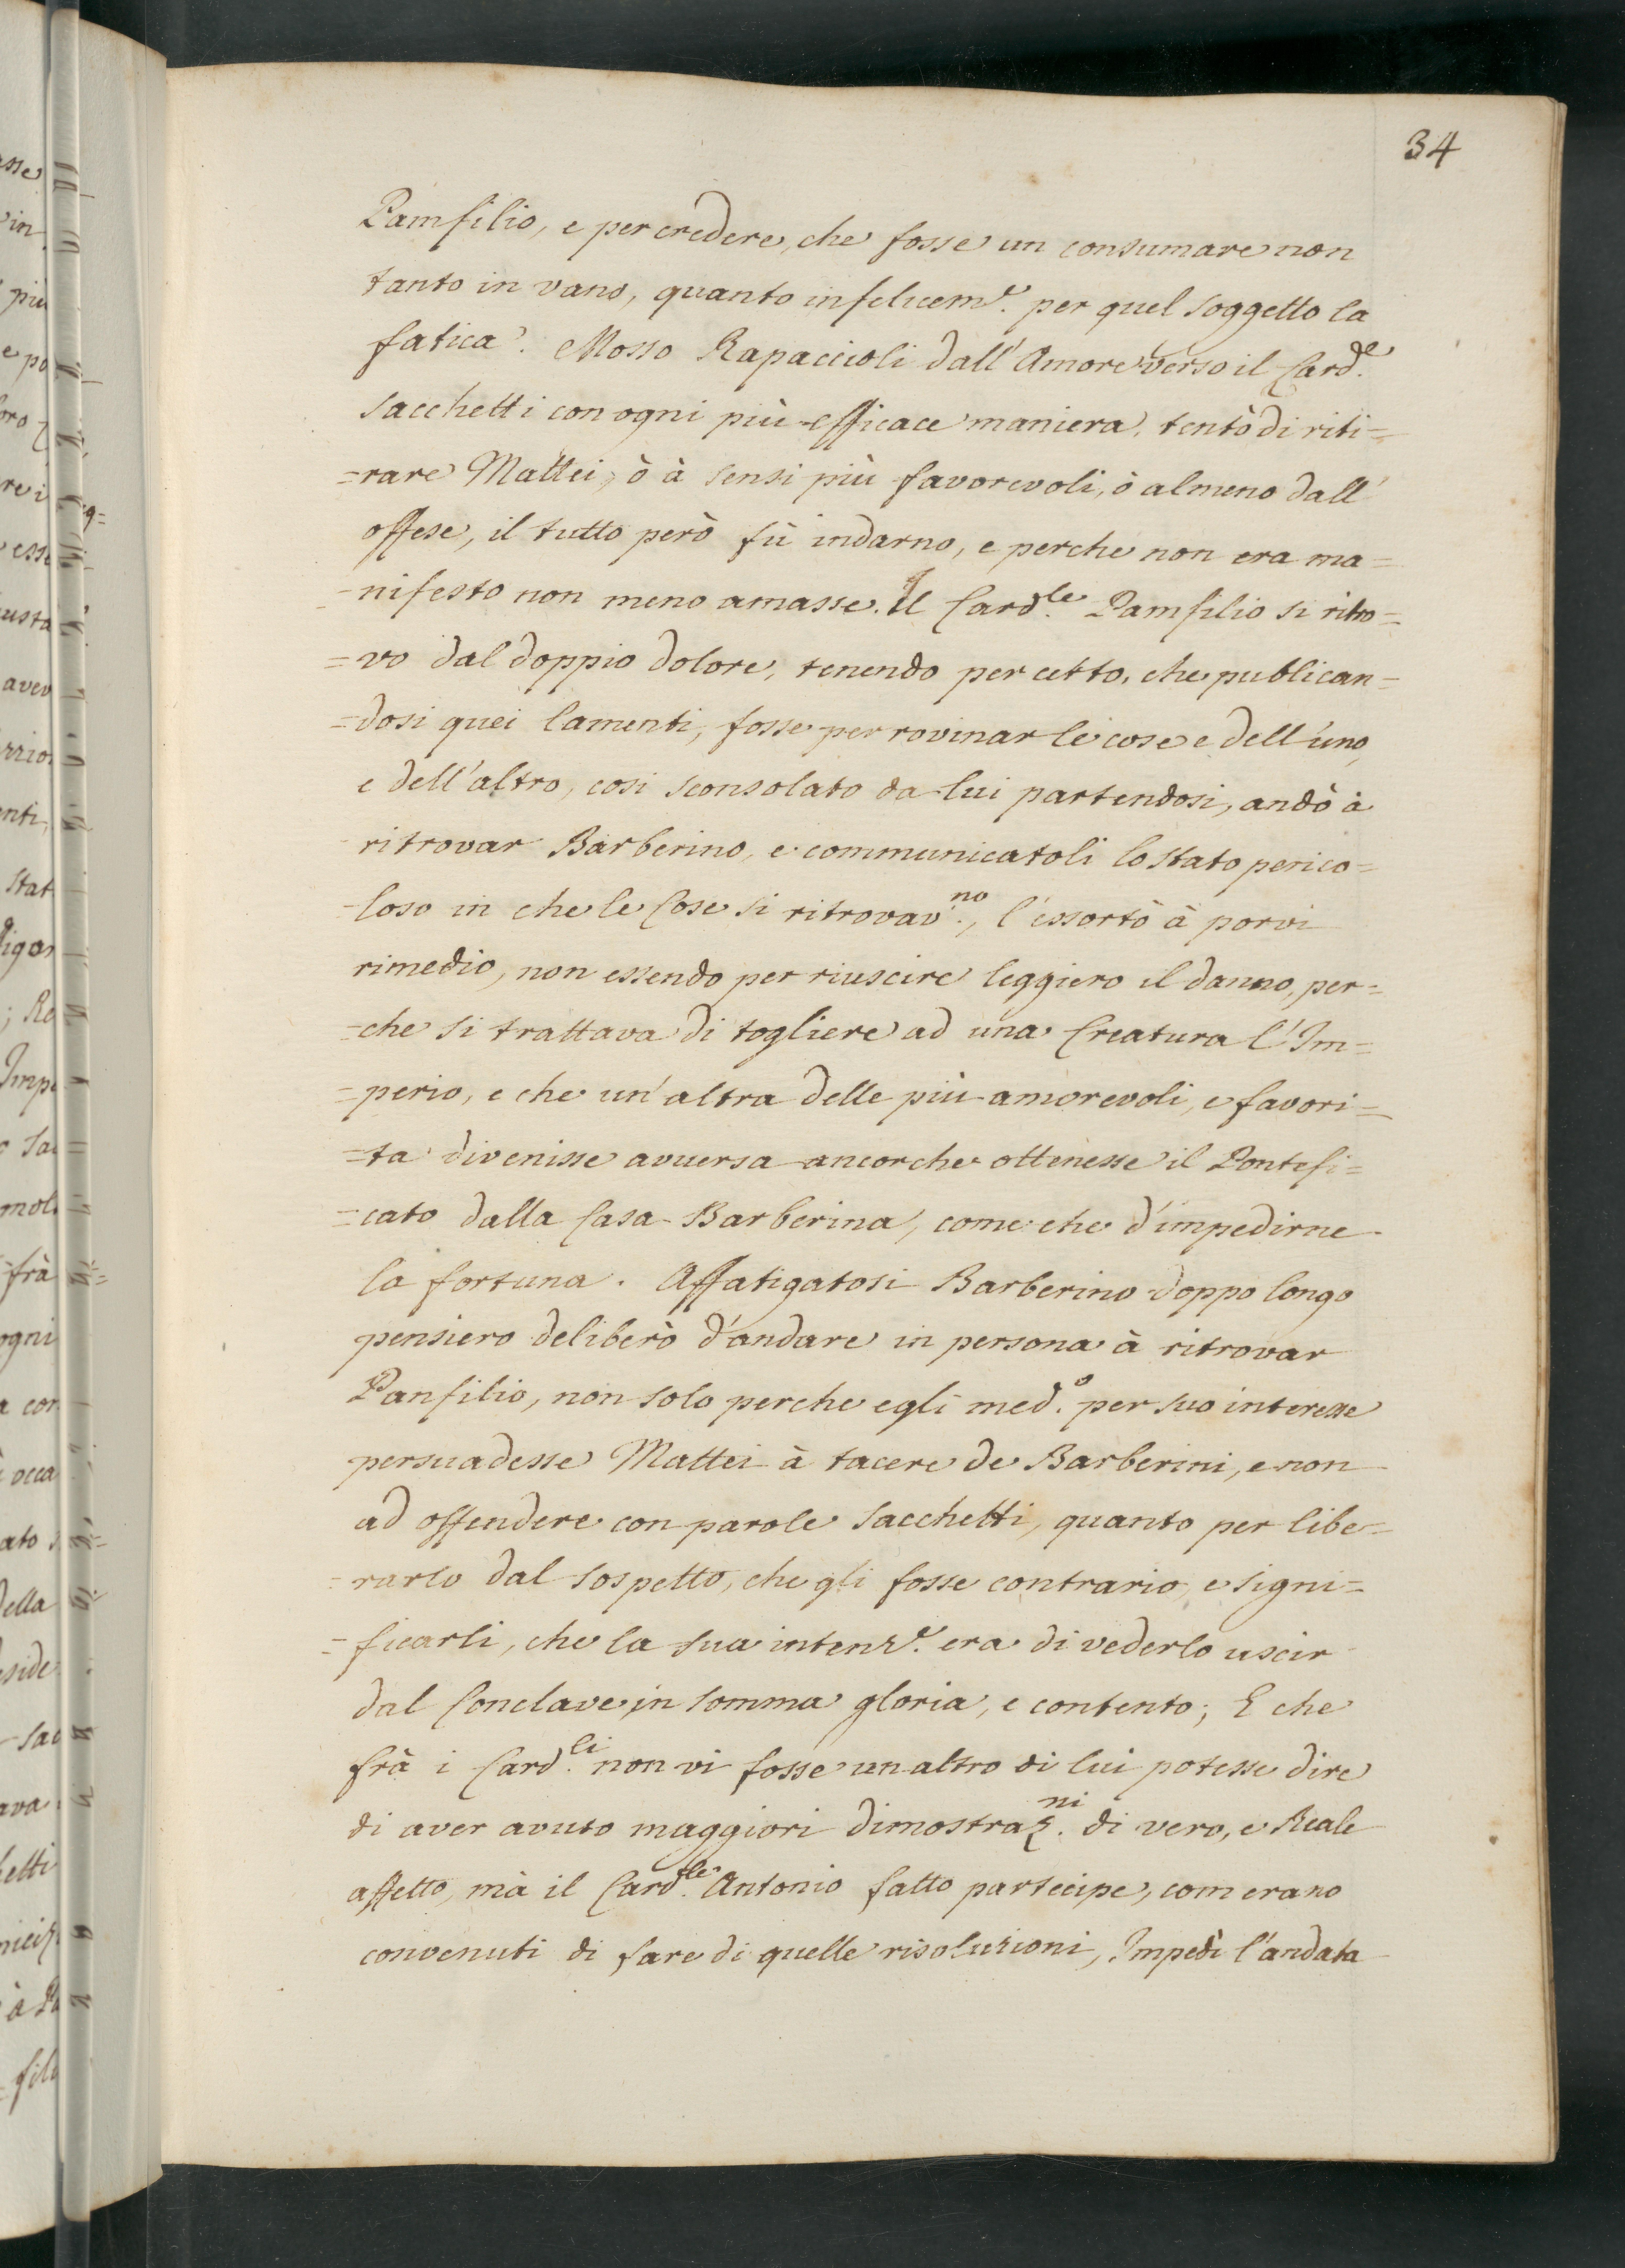 34
Pamfilio, e per credere, che fosse un consumare non
tanto in vano, quanto infelicem.e per quel soggetto la
fatica. Mosso Rapaccioli dall'Amore verso il Card.e
Sacchetti con ogni più efficace maniera, tentò di riti=
=rare Mattei, ò à sensi più favorevoli, ò almeno dall'
offese, il tutto però fù indarno, e perche non era ma=
=nifesto non meno amasse. Il Card.le Pamfilio si ritro=
=vo dal doppio dolore, tenendo per cetto, che publican=
=dosi quei lamenti, fosse per rovinar le cose e dell'uno,
e dell'altro, cosi sconsolato da lui partendosi, andò à
ritrovar Barberino, e communicatoli lo stato perico=
=loso in che le Cose si ritrovav.no, l'essortò à porvi
rimedio, non essendo per riuscire leggiero il danno, per=
=che si trattava di togliere ad una Creatura l'Im=
=perio, e che un'altra delle più amorevoli, e favori=
=ta divenisse avversa ancorche ottenesse il Pontefi=
=cato dalla Casa Barberina, come che d'impedirne
la fortuna. Affatigatosi Barberino doppo longo
pensiero deliberò d'andare in persona à ritrovar
Panfilio, non solo perche egli med.o per suo interesse
persuadesse Mattei à tacere de Barberini, e non
ad offendere con parole Sacchetti, quanto per libe=
=rarlo dal sospetto, che gli fosse contrario, e signi=
=ficarli, che la sua intenz.e era di vederlo uscir
dal Conclave in somma gloria, e contento; E che
frà i Card.li non vi fosse un altro di lui potesse dire
di aver avuto maggiori dimostraz.ni di vero, e Reale
affetto, mà il Card.le Antonio fatto partecipe, com erano
convenuti di fare di quelle risoluzioni, Impedì l'andata